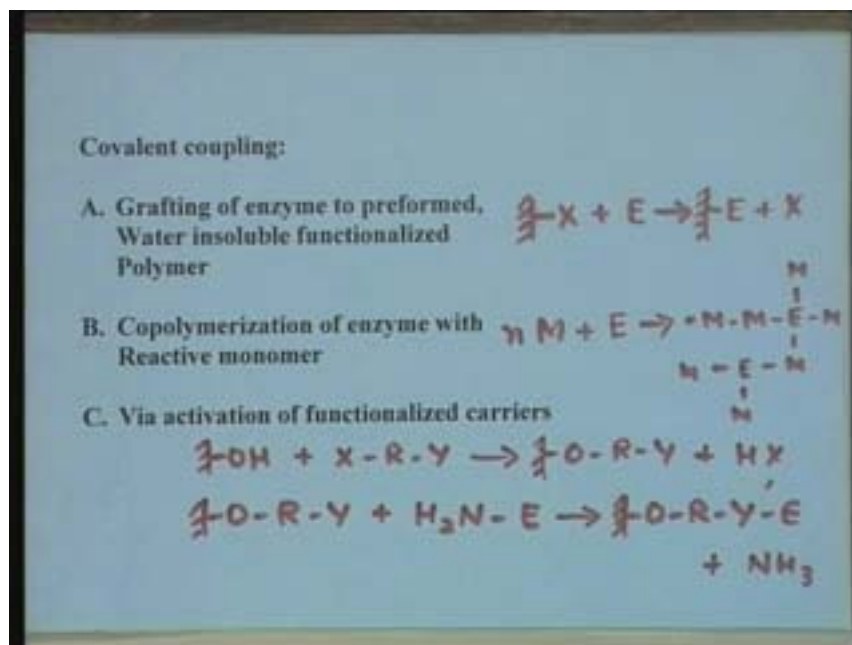 Covalent coupling:
A. Grafting of enzyme to preformed,
Water insoluble functionalized
Polymer
-X + E → -E + X
B. Copolymerization of enzyme with
Reactive monomer
M
n M + E → -M-M-E-M
M-E-M
M
C. Via activation of functionalized carriers
-OH + X-R-Y → -O-R-Y + HX
-O-R-Y + H₂N-E → -O-R-Y'-E
+ NH₃